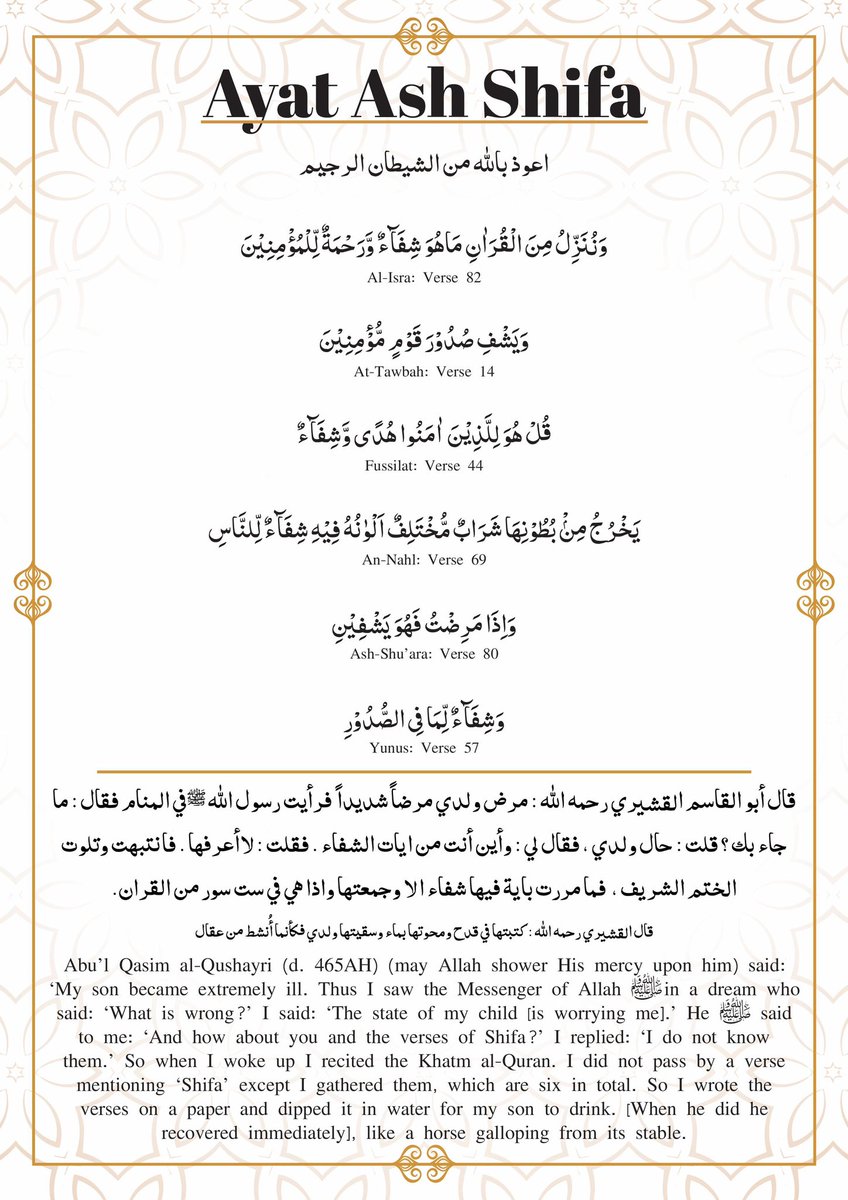 Ayat Ash Shifa
اعوذ بالله من الشيطان الرجيم
وَنُنَزِّلُ مِنَ الْقُرْاٰنِ مَا هُوَ شِفَآءٌ وَّرَحْمَةٌ لِّلْمُؤْمِنِيْنَ
Al-Isra: Verse 82
وَيَشْفِ صُدُوْرَ قَوْمٍ مُّؤْمِنِيْنَ
At-Tawbah: Verse 14
قُلْ هُوَ لِلَّذِيْنَ اٰمَنُوا هُدًى وَّشِفَآءٌ
Fussilat: Verse 44
يَخْرُجُ مِنْۢ بُطُوْنِهَا شَرَابٌ مُّخْتَلِفٌ اَلْوٰنُهُ فِيْهِ شِفَآءٌ لِّلنَّاسِ
An-Nahl: Verse 69
وَاِذَا مَرِضْتُ فَهُوَ يَشْفِيْنِ
Ash-Shu’ara: Verse 80
وَشِفَآءٌ لِّمَا فِى الصُّدُوْرِ
Yunus: Verse 57
قال أبو القاسم القشيري رحمه الله : مرض ولدي مرضاً شديداً فرأيت رسول الله ﷺ في المنام فقال : ما
جاء بك؟ قلت : حال ولدي ، فقال لي : وأين أنت من ايات الشفاء . فقلت : لا أعرفها . فانتبهت وتلوت
الختم الشريف ، فما مررت باية فيها شفاء الا وجمعتها واذا هي في ست سور من القران.
قال القشيري رحمه الله : كتبتها في قدح ومحوتها بماء وسقيتها ولدي فكأنما أُنشط من عقال
Abu’l Qasim al-Qushayri (d. 465AH) (may Allah shower His mercy upon him) said:
‘My son became extremely ill. Thus I saw the Messenger of Allah ﷺ in a dream who
said: ‘What is wrong?’ I said: ‘The state of my child [is worrying me].’ He ﷺ said
to me: ‘And how about you and the verses of Shifa?’ I replied: ‘I do not know
them.’ So when I woke up I recited the Khatm al-Quran. I did not pass by a verse
mentioning ‘Shifa’ except I gathered them, which are six in total. So I wrote the
verses on a paper and dipped it in water for my son to drink. [When he did he
recovered immediately], like a horse galloping from its stable.